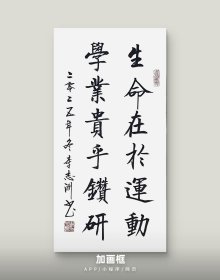 生命在於運動
學業貴乎鑽研
二零二五年冬李志洲书
加画框
APP/小程序/网页